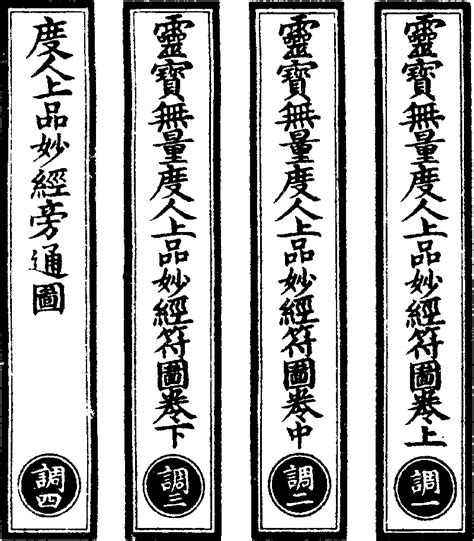 靈寶無量度人上品妙經符圖卷上
調一
靈寶無量度人上品妙經符圖卷中
調二
靈寶無量度人上品妙經符圖卷下
調三
度人上品妙經旁通圖
調四